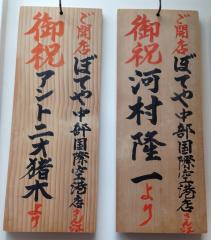 ご開店
ぼてや中部国際空港店さん江
御祝
河村隆一より
ご開店
ぼてや中部国際空港店さん江
御祝
アントニオ猪木より